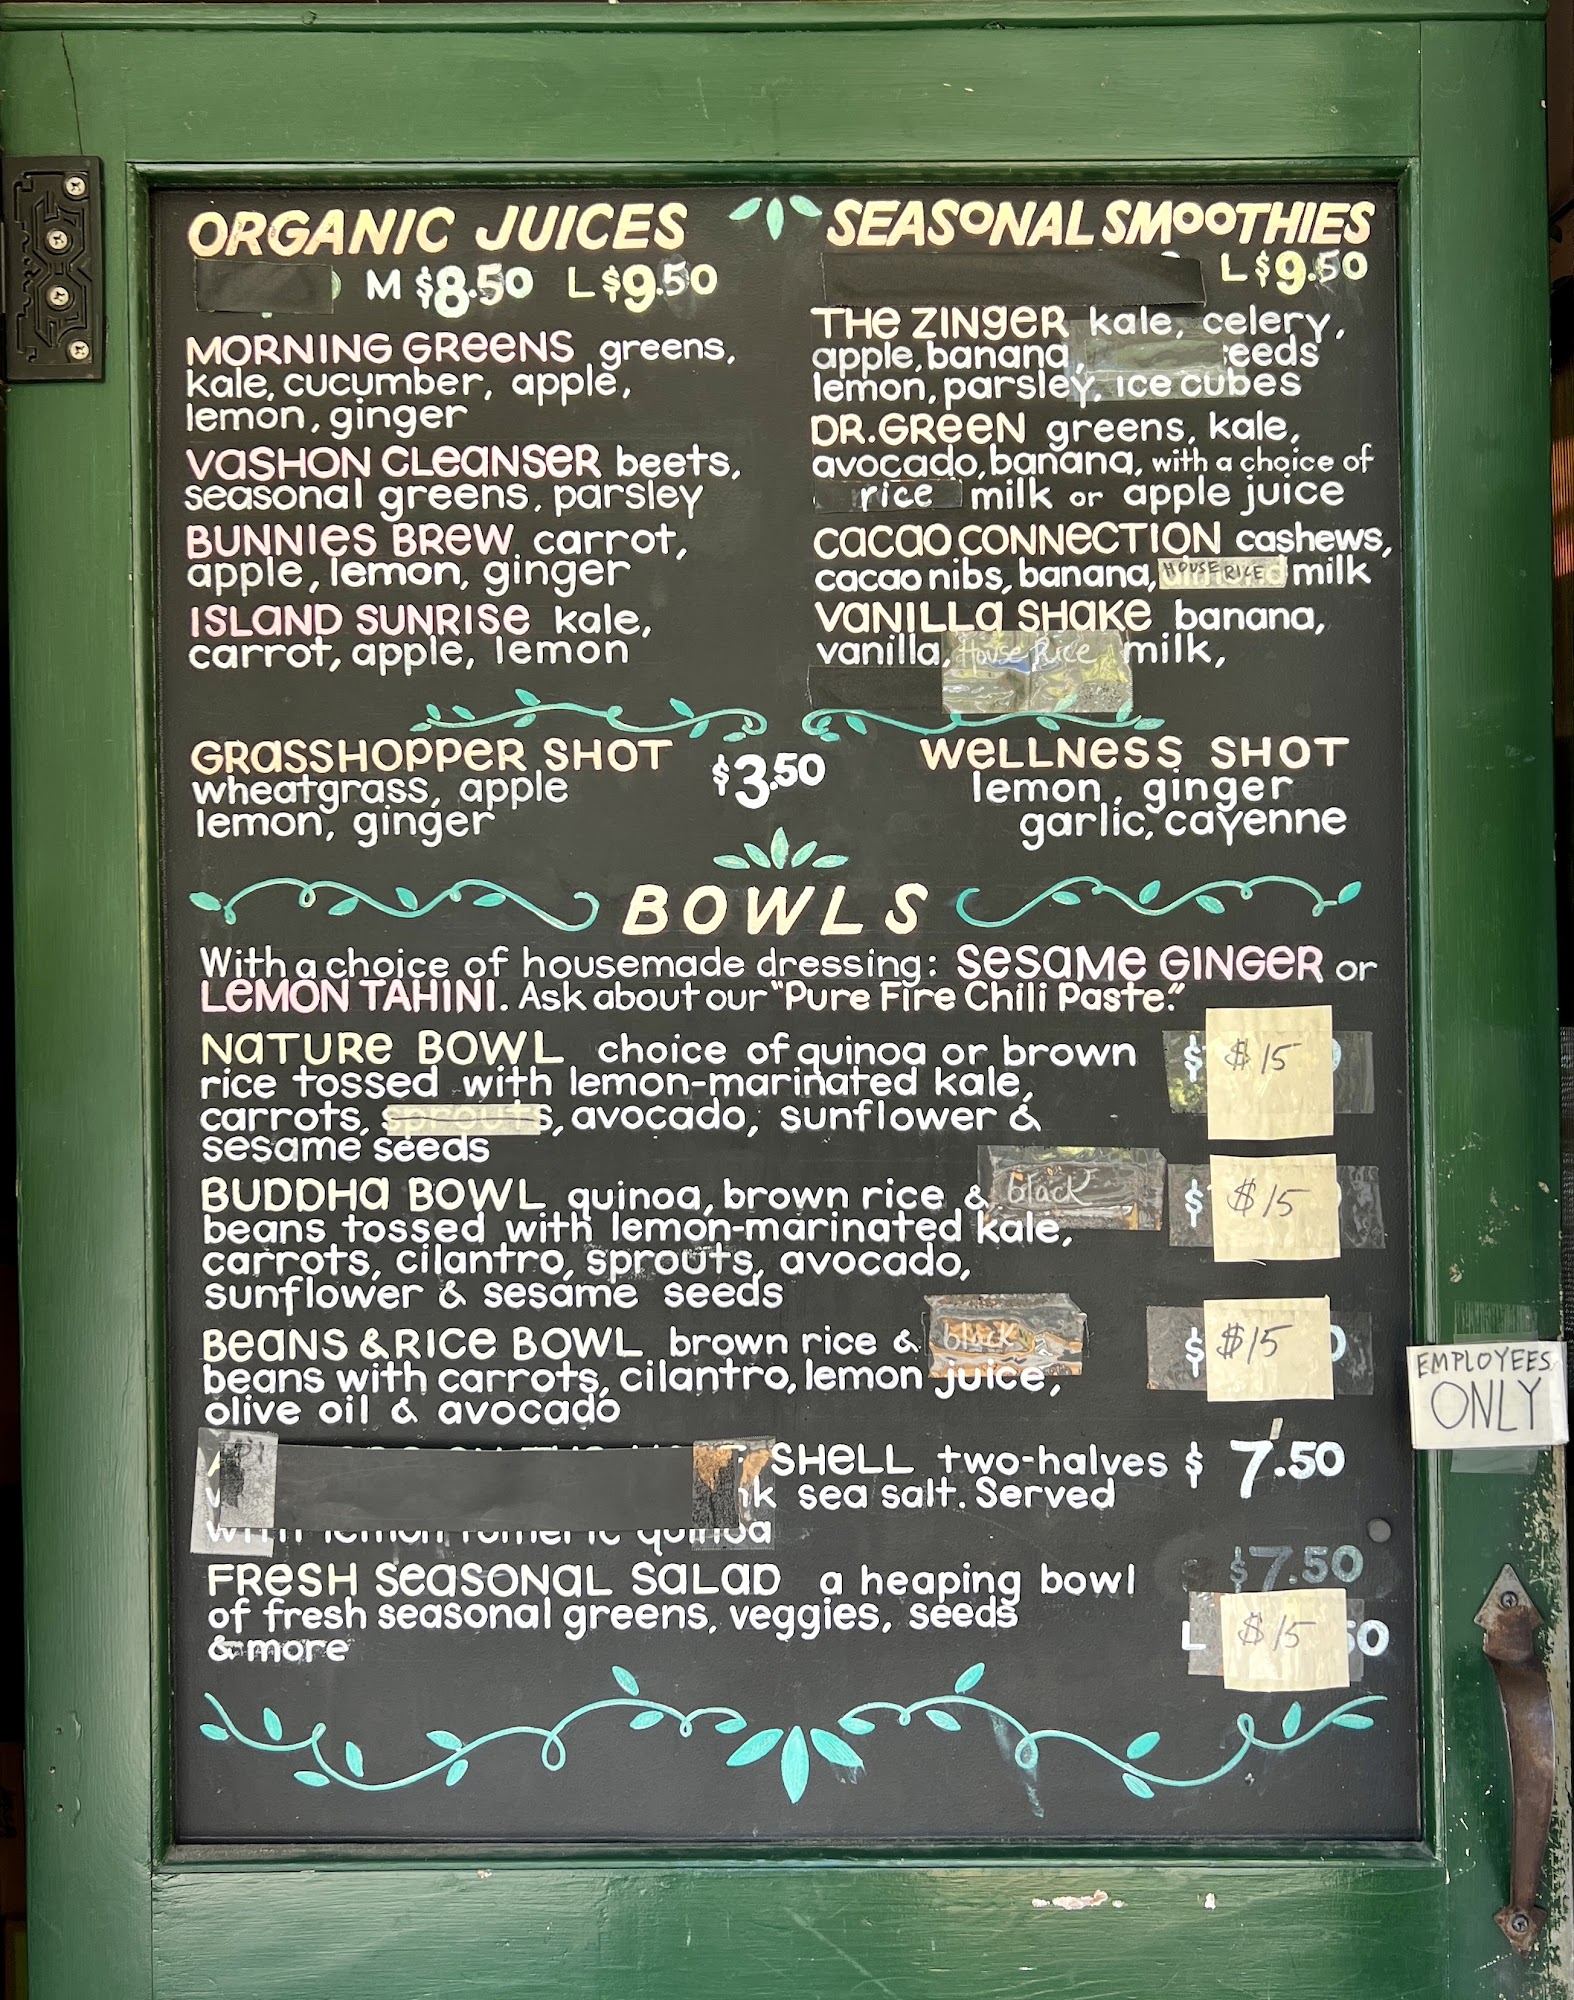 ORGANIC JUICES
M $8.50 L $9.50
MORNING GREENS greens,
kale, cucumber, apple,
lemon, ginger
VASHON CLEANSER beets,
seasonal greens, parsley
BUNNIES BREW carrot,
apple, lemon, ginger
ISLAND SUNRISE kale,
carrot, apple, lemon
SEASONAL SMOOTHIES
L $9.50
THE ZINGER kale, celery,
apple, banana, eeds
lemon, parsley, ice cubes
DR. GREEN greens, kale,
avocado, banana, with a choice of
rice milk or apple juice
CACAO CONNECTION cashews,
cacao nibs, banana, HOUSE RICE milk
VANILLA SHAKE banana,
vanilla, House Rice milk,
GRASSHOPPER SHOT
wheatgrass, apple
lemon, ginger
$3.50
WELLNESS SHOT
lemon, ginger
garlic, cayenne
BOWLS
With a choice of housemade dressing: SESAME GINGER or
LEMON TAHINI. Ask about our "Pure Fire Chili Paste."
NATURE BOWL choice of quinoa or brown $ $15
rice tossed with lemon-marinated kale,
carrots, sprouts, avocado, sunflower &
sesame seeds
BUDDHA BOWL quinoa, brown rice & black $ $15
beans tossed with lemon-marinated kale,
carrots, cilantro, sprouts, avocado,
sunflower & sesame seeds
BEANS & RICE BOWL brown rice & black $ $15
beans with carrots, cilantro, lemon juice,
olive oil & avocado
SHELL two-halves $ 7.50
sea salt. Served
with lemon tumeric quinoa
FRESH SEASONAL SALAD a heaping bowl $7.50
of fresh seasonal greens, veggies, seeds
& more L $15 50
EMPLOYEES
ONLY